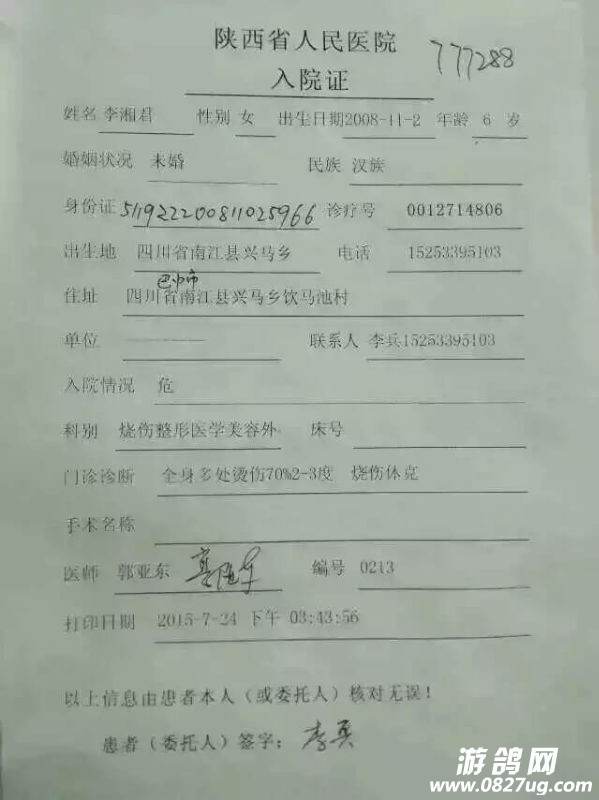 陕西省人民医院
777288
入院证
姓名 李湘君 性别 女 出生日期2008-11-2 年龄 6 岁
婚姻状况 未婚 民族 汉族
身份证 511922200811025966 诊疗号 0012714806
出生地 四川省南江县兴马乡 电话 15253395103
巴中市
住址 四川省南江县兴马乡饮马池村
单位 联系人 李兵15253395103
入院情况 危
科别 烧伤整形医学美容外 床号
门诊诊断 全身多处烫伤70%2-3度 烧伤休克
手术名称
医师 郭亚东 编号 0213
打印日期 2015-7-24 下午 03:43:56
以上信息由患者本人（或委托人）核对无误！
患者（委托人）签字：
游鸽网
www.0827ug.com